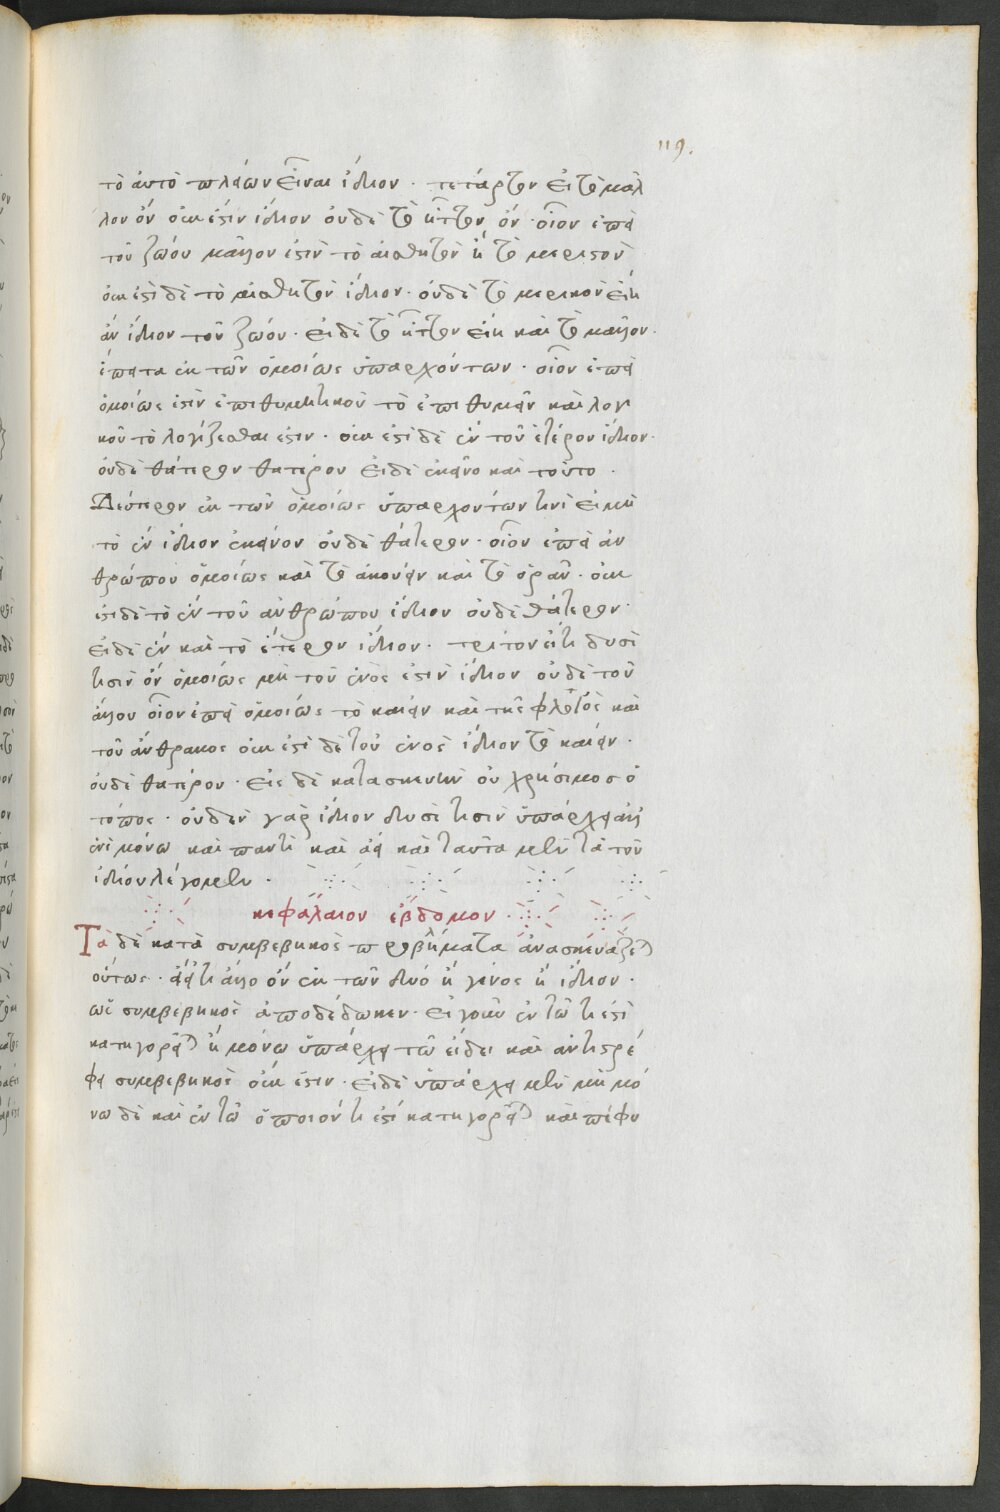 119.
τὸ αὐτὸ πλειόνων εἶναι ἴδιον · τέταρτον εἰ τὸ μᾶλ
λον ὂν οὐκ ἔστιν ἴδιον οὐδὲ τὸ ἧττον ὄν · οἷον ἐπεὶ
τοῦ ζώου μᾶλλον ἐστὶν τὸ αἰσθητὸν ἢ τὸ μεριστὸν
οὐκ ἔστι δὲ τὸ αἰσθητὸν ἴδιον · οὐδὲ τὸ μερικὸν εἴη
ἂν ἴδιον τοῦ ζώου · εἰ δὲ τὸ ἧττον εἴη καὶ τὸ μᾶλλον ·
ἔπειτα ἐκ τῶν ὁμοίως ὑπαρχόντων · οἷον ἐπεὶ
ὁμοίως ἐστὶν ἐπιθυμητικοῦ τὸ ἐπιθυμεῖν καὶ λογι
κοῦ τὸ λογίζεσθαι ἐστιν · οὐκ ἔστι δὲ ἓν τοῦ ἑτέρου ἴδιον ·
οὐδὲ θάτερον θατέρου εἰ δὲ ἐκεῖνο καὶ τοῦτο ·
Δεύτερον ἐκ τῶν ὁμοίως ὑπαρχόντων τινὶ εἰ μὴ
τὸ ἓν ἴδιον ἐκείνου οὐδὲ θάτερον · οἷον ἐπεὶ ἀν
θρώπου ὁμοίως καὶ τὸ ἀκούειν καὶ τὸ ὁρᾶν · οὐκ
ἔστι δὲ τὸ ἓν τοῦ ἀνθρώπου ἴδιον οὐδὲ θάτερον ·
εἰ δὲ ἓν καὶ τὸ ἕτερον ἴδιον · τρίτον εἴ τι δυσί
τισιν ὂν ὁμοίως μὴ τοῦ ἑνός ἐστιν ἴδιον οὐδὲ τοῦ
ἄλλου οἷον ἐπεὶ ὁμοίως τὸ καίειν καὶ τῆς φλογὸς καὶ
τοῦ ἄνθρακος οὐκ ἔστι δὲ τοῦ ἑνὸς ἴδιον τὸ καίειν ·
οὐδὲ θατέρου · εἰς δὲ κατασκευὴν οὐ χρήσιμος ὁ
τόπος · οὐδὲν γὰρ ἴδιον δυσί τισιν ὑπάρχει ἀλλ'
ἑνὶ μόνω καὶ παντὶ καὶ ἀεὶ καὶ ταῦτα μὲν τὰ τοῦ
ἰδίου λέγομεν ·
κεφάλαιον ἕβδομον ·
Τὰ δὲ κατὰ συμβεβηκὸς προβλήματα ἀνασκευάζεται
οὕτως · εἴ τι ἄλλο ὂν ἐκ τῶν δυό ἢ γένος ἢ ἴδιον ·
ὡς συμβεβηκὸς ἀποδέδωκεν · εἰ γοῦν ἐν τῶ τί ἐστι
κατηγορεῖται ἢ μόνω ὑπάρχει τῶ εἴδει καὶ ἀντιστρέ
φει συμβεβηκὸς οὐκ ἔστιν · εἰ δὲ ὑπάρχει μὲν μὴ μό
νω δὲ καὶ ἐν τῶ ὁποῖόν τί ἐστι κατηγορεῖται καὶ πέφυ